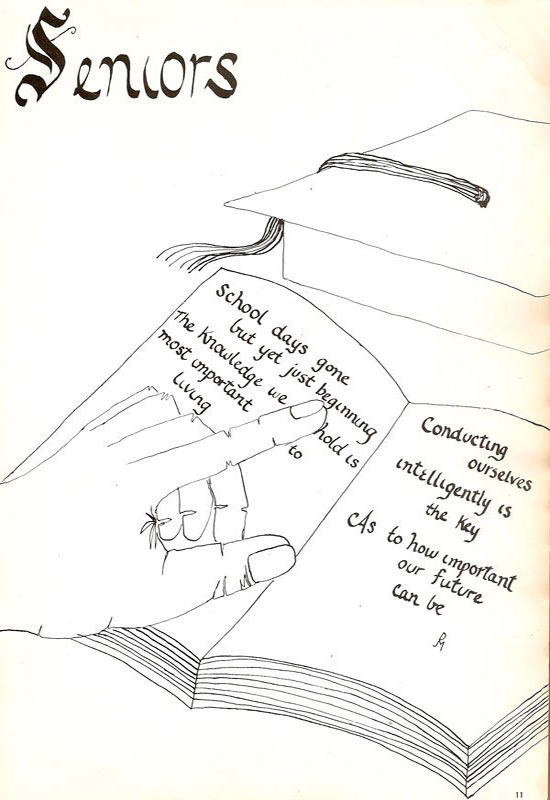 Seniors
School days gone
but yet just beginning
The Knowledge we hold is
most important to
living
Conducting
ourselves
intelligently is
the Key
As to how important
our future
can be
PM
11